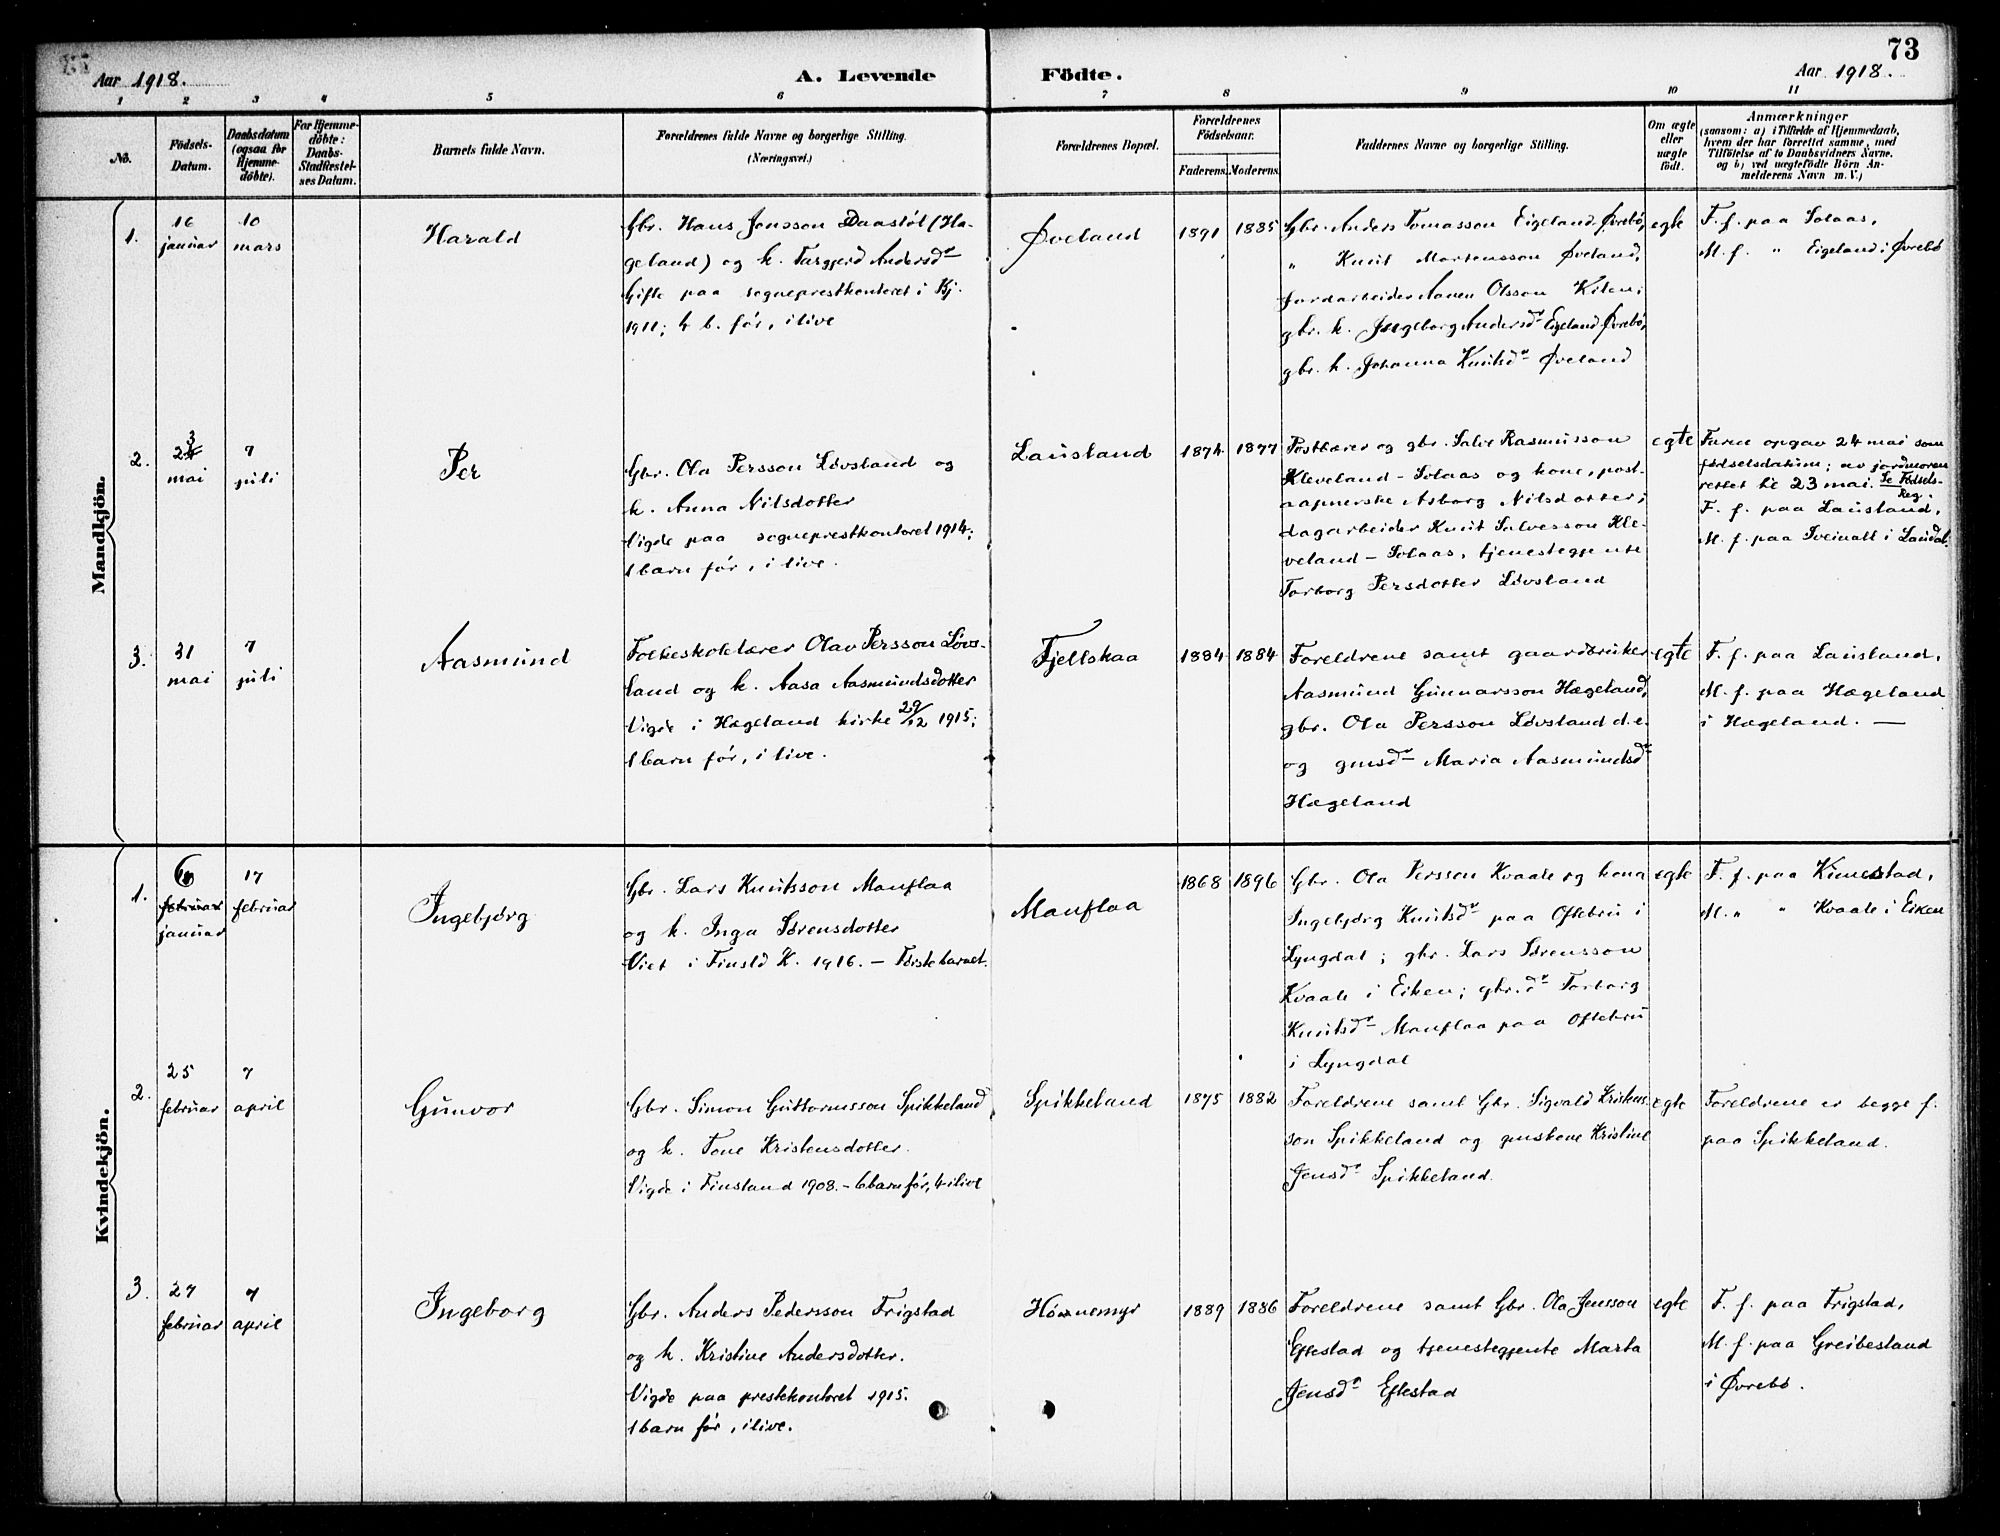 73
Aar 1918.
A. Levende Födte.
Aar 1918.
1 2 3 4 5 6 7 8 9 10 11
No.
Födsels-
Datum.
Daabsdatum
(ogsaa for
Hjemme-
döbte).
For Hjemme-
döbte:
Daabs-
Stadfæstel-
ses Datum.
Barnets fulde Navn.
Forældrenes fulde Navne og borgerlige Stilling.
(Næringsvei.)
Forældrenes Bopæl.
Forældrenes
Födselsaar.
Faderens. Moderens.
Faddernes Navne og borgerlige Stilling.
Om ægte
eller
uægte
födt.
Anmærkninger
(saasom: a) i Tilfælde af Hjemmedaab,
hvem der har forrettet samme, med
Tilföielse af to Daabsvidners Navne,
og b) ved uægtefödte Börn An-
melderens Navn m. V.)
Mandkjön.
1.
16
januar
10
mars
Harald
Gbr. Hans Jensson Daastøl (Hæ-
geland) og k. Targjerd Andersdr
Gifte paa sogneprestkontoret i Kj.
1911; 4 b. før, i live
Øveland
1891
1885
Gbr. Anders Tomasson Eigeland, Øvrebø,
" Knut Mortensson Øveland,
Jordarbeider Aanen Olsson Kilen;
gbr. k. Ingeborg Andersdr Eigeland, Øvrebø,
gbr. k. Johanna Knutsdr Øveland
egte
F. f. paa Solaas,
M. f. " Eigeland i Øvrebø
2.
23
mai
7
juli
Per
Gbr. Ola Persson Løvsland og
k. Anna Nilsdotter
Vigde paa sogneprestkontoret 1914;
1 barn før, i live.
Lausland
1874
1877
Postbærer og gbr. Salve Rasmusson
Kleveland - Solaas og kone, post-
aapnerske Asborg Nilsdotter;
dagarbeider Knut Salvesson Kle-
veland - Solaas, tjenestegjente
Torborg Persdotter Løvsland
egte
Faren opgav 24 mai som
fødselsdatum; av jordmoren
rettet til 23 mai. Se Fødsels-
Reg.
F. f. paa Lausland,
M. f. paa Sveinall i Laudal.
3.
31
mai
7
juli
Aasmund
Folkeskolelærer Olav Persson Løvs-
land og k. Aasa Aasmundsdotter
Vigde i Hægeland kirke 29/12 1915;
1 barn før, i live.
Fjellskaa
1884
1884
Foreldrene samt gaardbruker
Aasmund Gunnarsson Hægeland,
gbr. Ola Persson Løvsland d.e.
og gmsdr Maria Aasmundsdr
Hægeland
egte
F. f. paa Lausland,
M. f. paa Hægeland
i Hægeland. —
Kvindekjön.
1.
6
februar
januar
17
februar
Ingebjørg
Gbr. Lars Knutsson Manflaa
og k. Inga Sørensdotter
Viet i Finsld K. 1916. - Første barnet.
Manflaa
1868
1896
Gbr. Ola Persson Kvaale og kona
Ingebjørg Knutsdr paa Oftebru i
Lyngdal; gbr. Lars Sørensson
Kvaale i Eiken; gbr.dr Torborg
Knutsdr Manflaa paa Oftebru
i Lyngdal
egte
F. f. paa Kimestad,
M. " " Kvaale i Eiken
2.
25
februar
7
april
Gunvor
Gbr. Simon Guttormsson Spikkeland
og k. Tone Kristensdotter.
Vigde i Finsland 1908. - 6 barn før, 4 i live
Spikkeland
1875
1882
Foreldrene samt Gbr. Sigvald Kristens-
son Spikkeland og gmskone Kristine
Jensdr Spikkeland.
egte
Foreldrene er begge f.
paa Spikkeland.
3.
27
februar
7
april
Ingeborg
Gbr. Anders Pedersson Frigstad
og k. Kristine Andersdotter.
Vigde paa prestekontoret 1915.
1 barn før, i live.
Hønnemyr
1889
1886
Foreldrene samt Gbr. Ola Jensson
Eftestad og tjenestegjente Marta
Jensdr Eftestad
egte
F. f. paa Frigstad,
M. f. paa Greibesland
i Øvrebø.